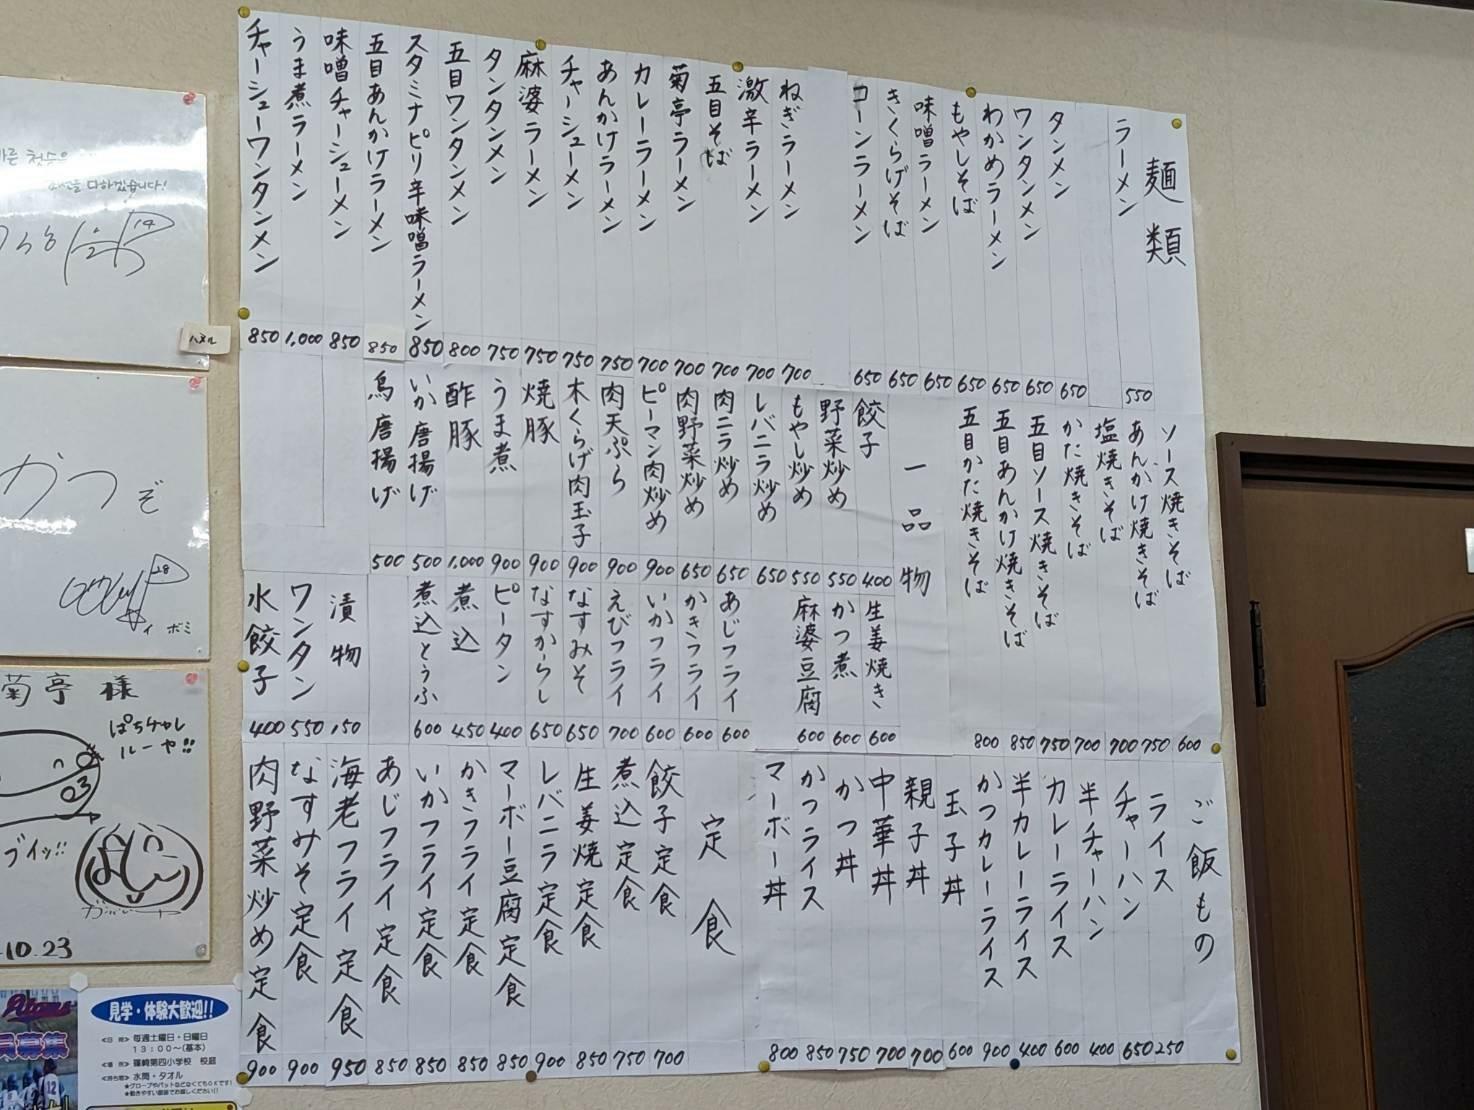 麺類
ラーメン 550
タンメン 650
ワンタンメン 650
わかめラーメン 650
もやしそば 650
味噌ラーメン 650
きくらげそば 650
コーンラーメン 650
ねぎラーメン 700
激辛ラーメン 700
五目そば 700
菊亭ラーメン 700
カレーラーメン 700
あんかけラーメン 750
チャーシューメン 750
麻婆ラーメン 750
タンタンメン 750
五目ワンタンメン 800
スタミナピリ辛味噌ラーメン 850
五目あんかけラーメン 850
味噌チャーシューメン 850
うま煮ラーメン 1,000
チャーシューワンタンメン 850
ソース焼きそば 600
あんかけ焼きそば 750
塩焼きそば 700
かた焼きそば 700
五目ソース焼きそば 750
五目あんかけ焼きそば 850
五目かた焼きそば 800
一品物
餃子 400
野菜炒め 550
もやし炒め 550
レバニラ炒め 650
肉ニラ炒め 650
肉野菜炒め 650
ピーマン肉炒め 900
肉天ぷら 900
木くらげ肉玉子 900
焼豚 900
うま煮 900
酢豚 1,000
いか唐揚げ 500
鳥唐揚げ 500
生姜焼き 600
かつ煮 600
麻婆豆腐 600
あじフライ 600
かきフライ 600
いかフライ 600
えびフライ 700
なすみそ 650
なすからし 650
ピータン 400
煮込 450
煮込とうふ 600
漬物 150
ワンタン 550
水餃子 400
ご飯もの
ライス 250
チャーハン 650
半チャーハン 400
カレーライス 600
半カレーライス 400
かつカレーライス 900
玉子丼 600
親子丼 700
中華丼 700
かつ丼 750
かつライス 850
マーボー丼 800
定食
餃子定食 700
煮込定食 750
生姜焼定食 850
レバニラ定食 900
マーボー豆腐定食 850
かきフライ定食 850
いかフライ定食 850
あじフライ定食 850
海老フライ定食 950
なすみそ定食 900
肉野菜炒め定食 900
ハヌル
かつぞ
イボミ
菊亭様
ぱちゃれ
ルーヤ!!
ブイッ!!
10.23
見学・体験大歓迎!!
<日時> 毎週土曜日・日曜日
13:00〜(基本)
<場所> 篠崎第四小学校 校庭
<持ち物> 水筒・タオル
★グローブやバットなどなくてもOKです!
★動きやすい服装でお越しください!!
員募集